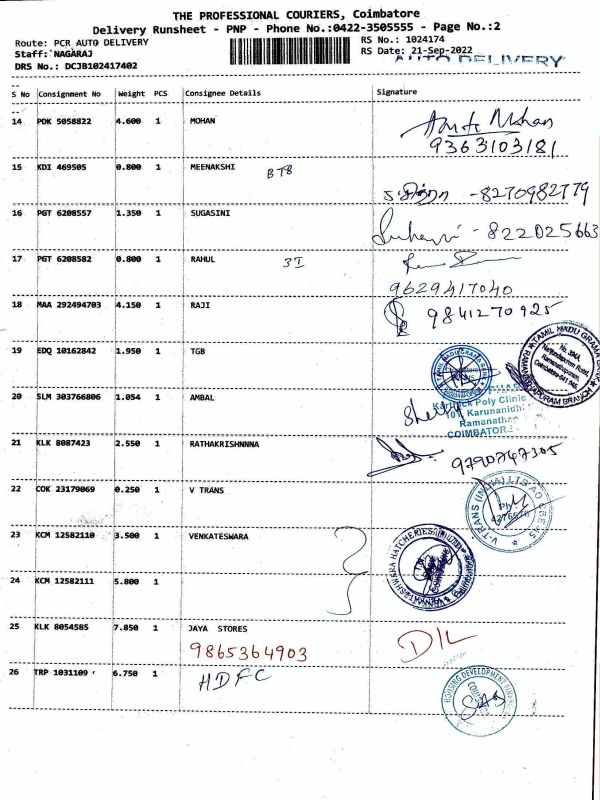 THE PROFESSIONAL COURIERS, Coimbatore
Delivery Runsheet - PNP - Phone No.:0422-3505555 - Page No.:2
Route: PCR AUTO DELIVERY
RS No.: 1024174
Staff: NAGARAJ
RS Date: 21-Sep-2022
AUTO DELIVERY
DRS No.: DCJB102417402
S No Consignment No Weight PCS Consignee Details Signature
14 PDK 5058822 4.600 1 MOHAN Mohan
9363103181
15 KDI 469505 0.800 1 MEENAKSHI
-8270982779
16 PGT 6208557 1.350 1 SUGASINI
- 822025663
17 PGT 6208582 0.800 1 RAHUL 3I
9629417040
18 MAA 292494703 4.150 1 RAJI 9841270925
19 EDQ 10162842 1.950 1 TGB
TAMIL NADU GRAMA
No. 39/4A,
Ramanathapuram,
Coimbatore-641 045.
RAMANATHAPURAM BRANCH
20 SLM 303766806 1.054 1 AMBAL
Karthick Poly Clinic
101, Karunanidhi
Ramanathap
COIMBATOR
21 KLK 8087423 2.550 1 RATHAKRISHNNNA 9790747305
22 COK 23179069 0.250 1 V TRANS
V-TRANS (INDIA) LTD
23 KCM 12582110 3.500 1 VENKATESWARA
HATCHERIES
24 KCM 12582111 5.800 1
25 KLK 8054585 7.850 1 JAYA STORES D/L
9865364903
26 TRP 1031109 6.750 1 HDFC
HOUSING DEVELOPMENT FINANCE